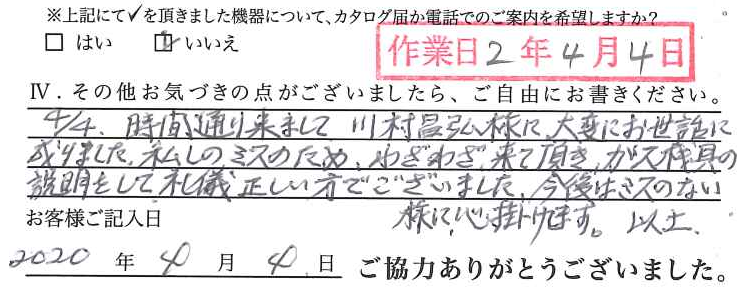 ※上記にて✓を頂きました機器について、カタログ届か電話でのご案内を希望しますか?
□ はい ☑ いいえ
作業日2年4月4日
Ⅳ．その他お気づきの点がございましたら、ご自由にお書きください。
4/4、時間通り来まして 川村昌弘様に、大変にお世話に
成りました。私しのミスのため、わざわざ、来て頂き、ガス機具の
説明をして礼儀正しい方でございました。今後はミスのない
様に、心掛けます。以上、
お客様ご記入日
2020 年 4 月 4 日 ご協力ありがとうございました。